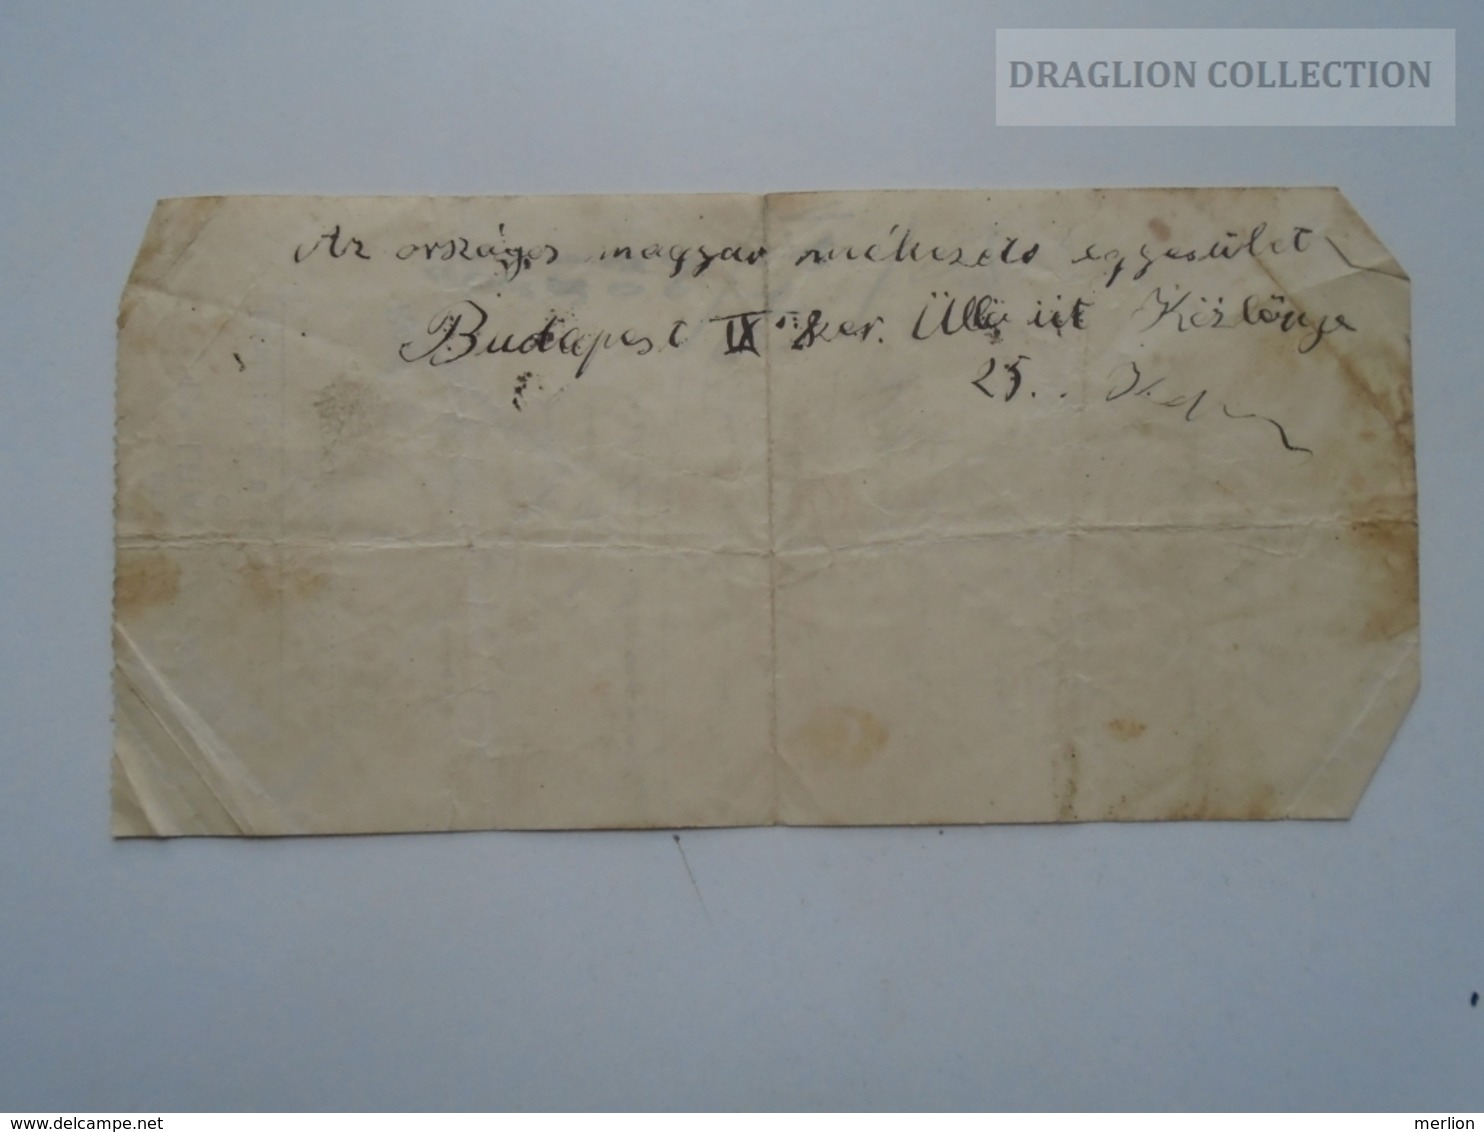 DRAGLION COLLECTION
Az országos magyar méhészeti egyesület
Budapest IX ker. Üllői út Közlönye
25.
www.delcampe.net
merlion